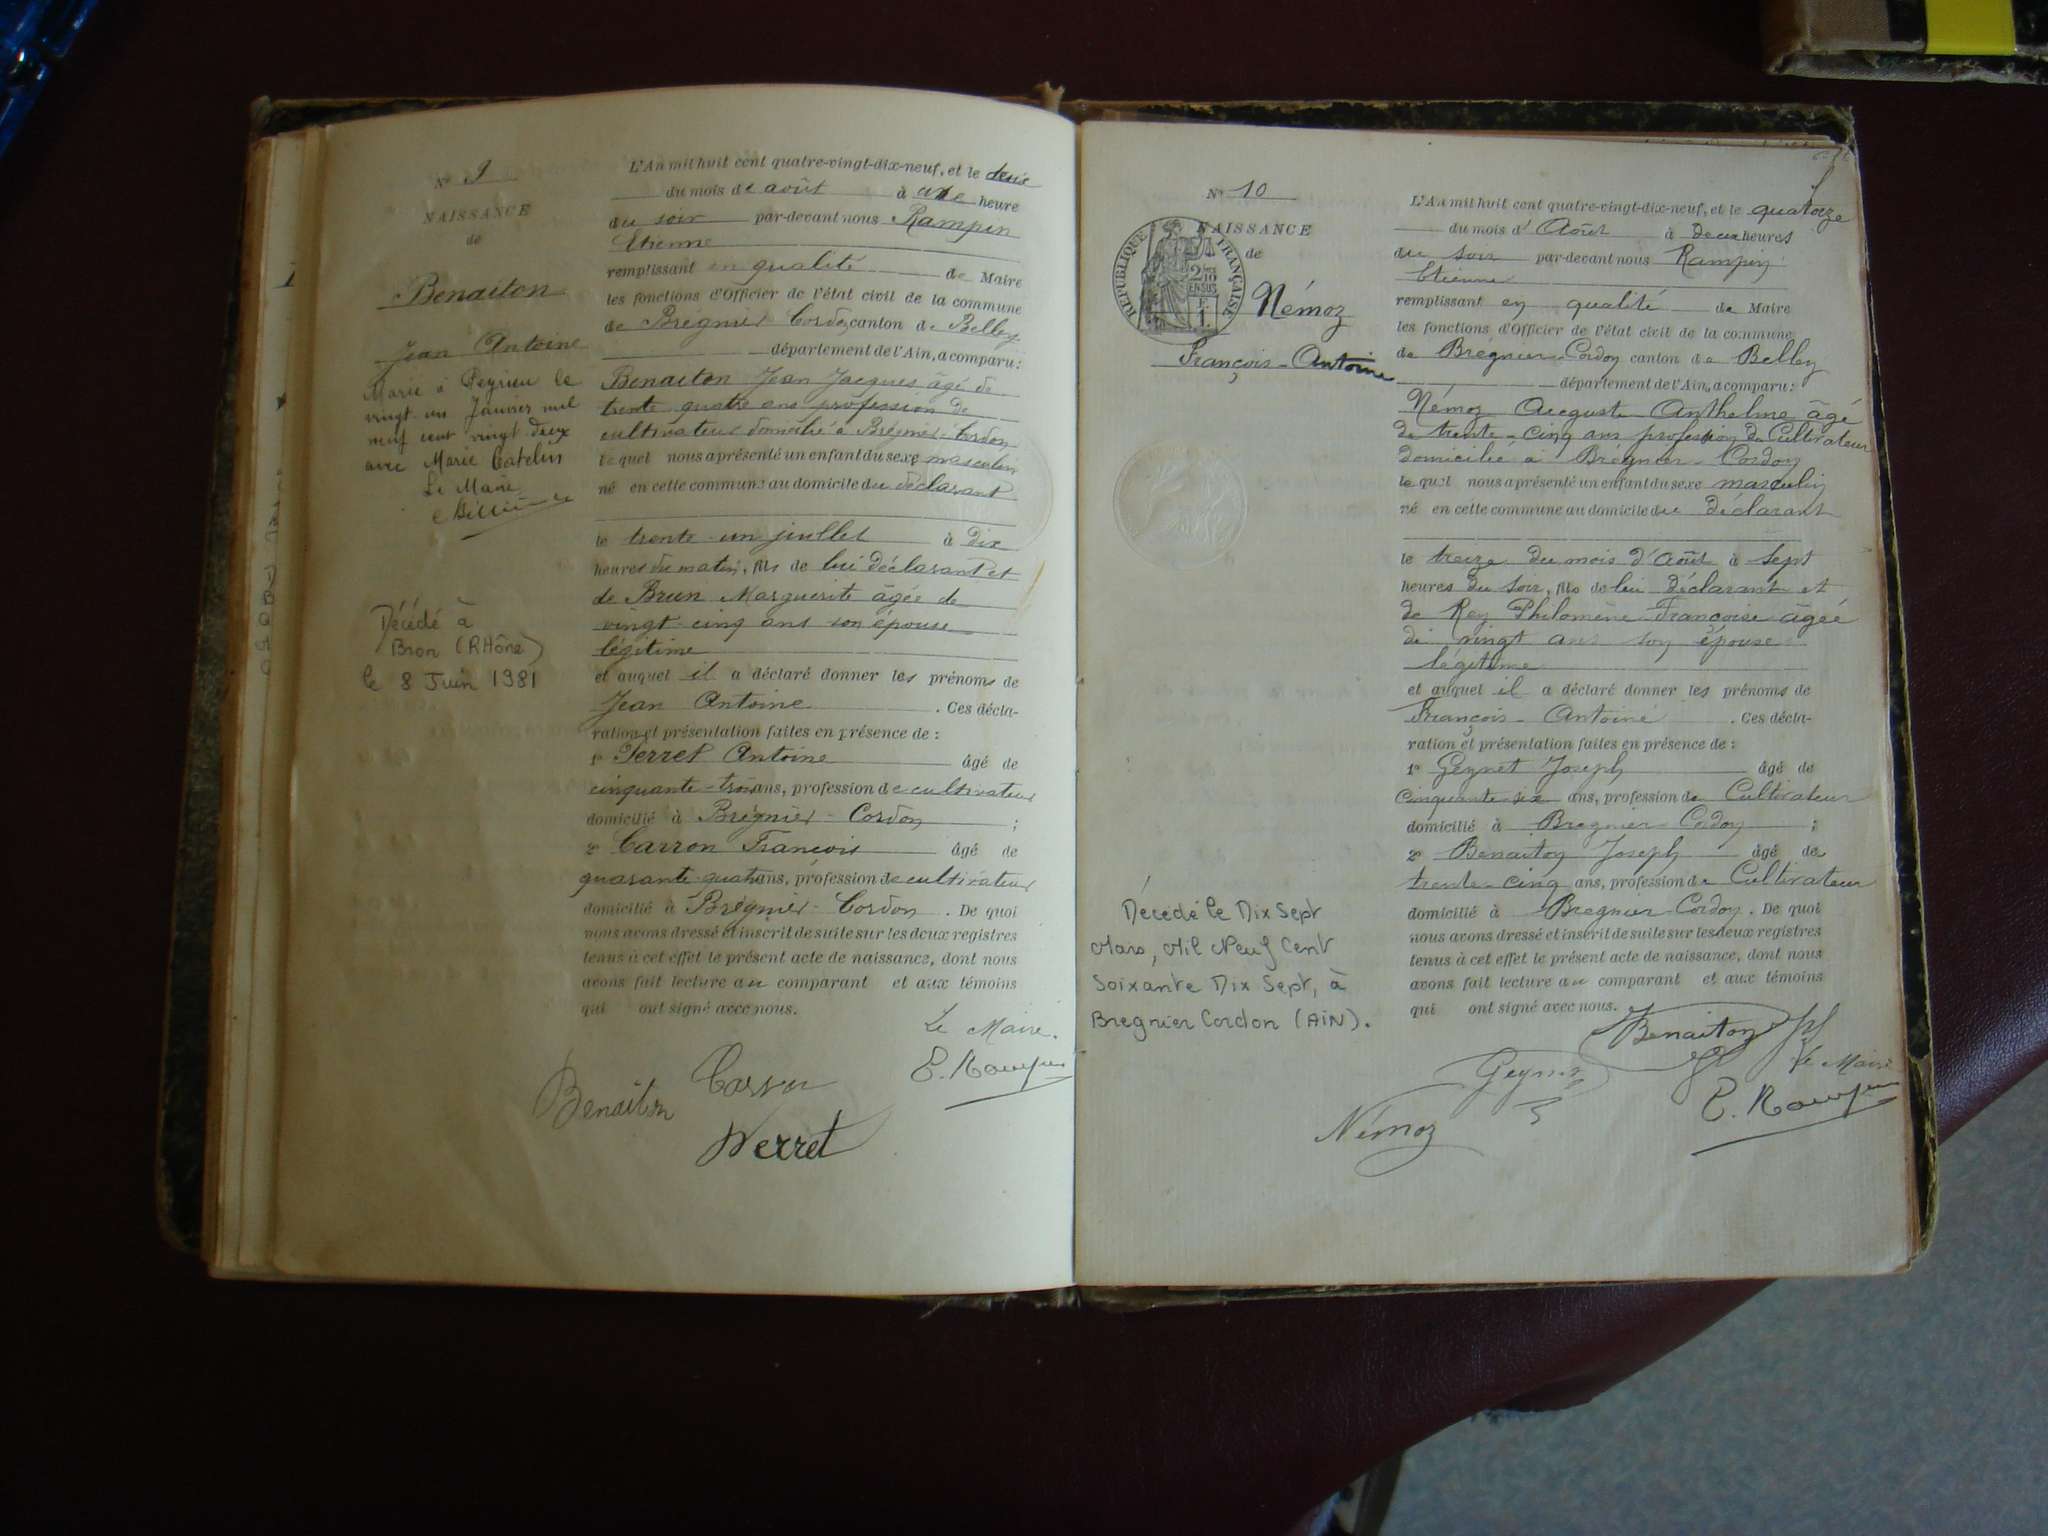 N° 9
NAISSANCE
de
Benaiton
Jean Antoine
Marié à Peyrieu le
vingt un Janvier mil
neuf cent vingt deux
avec Marie Catelin
Le Maire
Décédé à
Bron (RHône)
le 8 Juin 1981
L'An mil huit cent quatre-vingt-dix-neuf, et le deux
du mois de août à une heure
du soir par-devant nous Rampin
Etienne
remplissant en qualité de Maire
les fonctions d'Officier de l'état civil de la commune
de Brégnier Cordon canton de Belley
département de l'Ain, a comparu :
Benaiton Jean Jacques âgé de
trente quatre ans profession de
cultivateur domicilié à Brégnier-Cordon
lequel nous a présenté un enfant du sexe masculin
né en cette commune au domicile du déclarant
le trente-un juillet à dix
heures du matin, fils de lui déclarant et
de Brun Marguerite âgée de
vingt-cinq ans son épouse
légitime
et auquel il a déclaré donner les prénoms de
Jean Antoine . Ces décla-
ration et présentation faites en présence de :
1° Perret Antoine âgé de
cinquante-trois ans, profession de cultivateur
domicilié à Brégnier-Cordon ;
2° Carron François âgé de
quarante-quatre ans, profession de cultivateur
domicilié à Brégnier-Cordon . De quoi
nous avons dressé et inscrit de suite sur les deux registres
tenus à cet effet le présent acte de naissance, dont nous
avons fait lecture au comparant et aux témoins
qui ont signé avec nous.
Le Maire.
E. Rampin
Benaiton Carron
Perret
N° 10
NAISSANCE
de
REPUBLIQUE FRANÇAISE
2/10
EN SUS
F.
1.
Némoz
François-Antoine
Décédé le Dix Sept
Mars, Mil Neuf Cent
Soixante Dix Sept, à
Bregnier Cordon (AiN).
L'An mil huit cent quatre-vingt-dix-neuf, et le quatorze
du mois d'Août à deux heures
du soir par-devant nous Rampin
Etienne
remplissant en qualité de Maire
les fonctions d'Officier de l'état civil de la commune
de Brégnier-Cordon canton de Belley
département de l'Ain, a comparu :
Némoz Auguste Anthelme âgé
de trente-cinq ans profession de Cultivateur
domicilié à Brégnier-Cordon
lequel nous a présenté un enfant du sexe masculin
né en cette commune au domicile du déclarant
le treize du mois d'août à sept
heures du soir, fils de lui déclarant et
de Rey Philomène Françoise âgée
de vingt ans son épouse
légitime
et auquel il a déclaré donner les prénoms de
François-Antoine . Ces décla-
ration et présentation faites en présence de :
1° Geynet Joseph âgé de
Cinquante six ans, profession de Cultivateur
domicilié à Bregnier-Cordon ;
2° Benaiton Joseph âgé de
trente-cinq ans, profession de Cultivateur
domicilié à Bregnier-Cordon . De quoi
nous avons dressé et inscrit de suite sur les deux registres
tenus à cet effet le présent acte de naissance, dont nous
avons fait lecture au comparant et aux témoins
qui ont signé avec nous.
Benaiton
Geynet Le Maire
Némoz E. Rampin